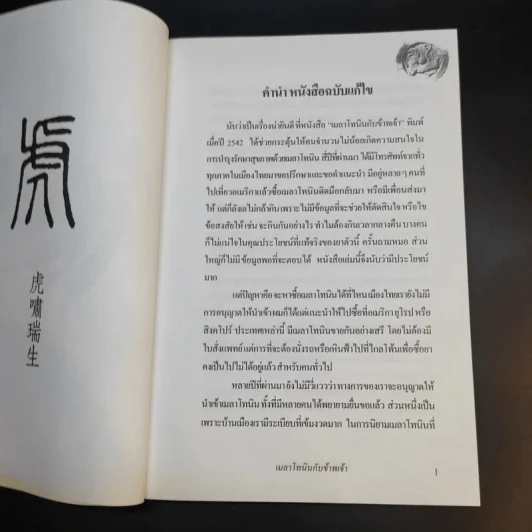 虎
虎嘯瑞生
คำนำ หนังสือฉบับแก้ไข
นับว่าเป็นเรื่องน่ายินดี ที่หนังสือ “เมลาโทนินกับข้าพเจ้า” พิมพ์
เมื่อปี 2542 ได้ช่วยกระตุ้นให้คนจำนวนไม่น้อยเกิดความสนใจใน
การบำรุงรักษาสุขภาพด้วยเมลาโทนิน สี่ปีที่ผ่านมา ได้มีโทรศัพท์จากทั่ว
ทุกภาคในเมืองไทยมาขอปรึกษาและขอคำแนะนำ มีอยู่หลายๆ คนที่
ไปเที่ยวอเมริกาแล้วซื้อเมลาโทนินติดมือกลับมา หรือมีเพื่อนส่งมา
ให้ แต่ก็ลังเลไม่กล้ากิน เพราะไม่มีข้อมูลที่จะช่วยให้ตัดสินใจ หรือไข
ข้อสงสัยให้ เช่น จะกินกันอย่างไร ทำไมต้องกินเวลากลางคืน บางคน
ก็ไม่แน่ใจในคุณประโยชน์ที่แท้จริงของยาตัวนี้ ครั้นถามหมอ ส่วน
ใหญ่ก็ไม่มี ข้อมูลพอที่จะตอบได้ หนังสือเล่มนี้จึงนับว่ามีประโยชน์
มาก
แต่ปัญหาคือ จะหาซื้อเมลาโทนินได้ที่ไหน เมืองไทยเรายังไม่มี
การอนุญาตให้นำเข้า ผมก็ได้แต่แนะนำให้ไปซื้อที่อเมริกา ยุโรป หรือ
สิงคโปร์ ประเทศเหล่านี้ มีเมลาโทนินขายกันอย่างเสรี โดยไม่ต้องมี
ใบสั่งแพทย์ แต่การที่จะต้องนั่งรถหรือเหินฟ้าไปที่ไกลโพ้นเพื่อซื้อยา
คงเป็นไปไม่ได้อยู่แล้ว สำหรับคนทั่วไป
หลายปีที่ผ่านมา ยังไม่มีวี่แววว่า ทางการของเราจะอนุญาตให้
นำเข้าเมลาโทนิน ทั้งที่มีหลายคนได้พยายามยื่นขอแล้ว ส่วนหนึ่งเป็น
เพราะบ้านเมืองเรามีระเบียบที่เข้มงวดมาก ในการนิยามเมลาโทนินที่
เมลาโทนินกับข้าพเจ้า
1